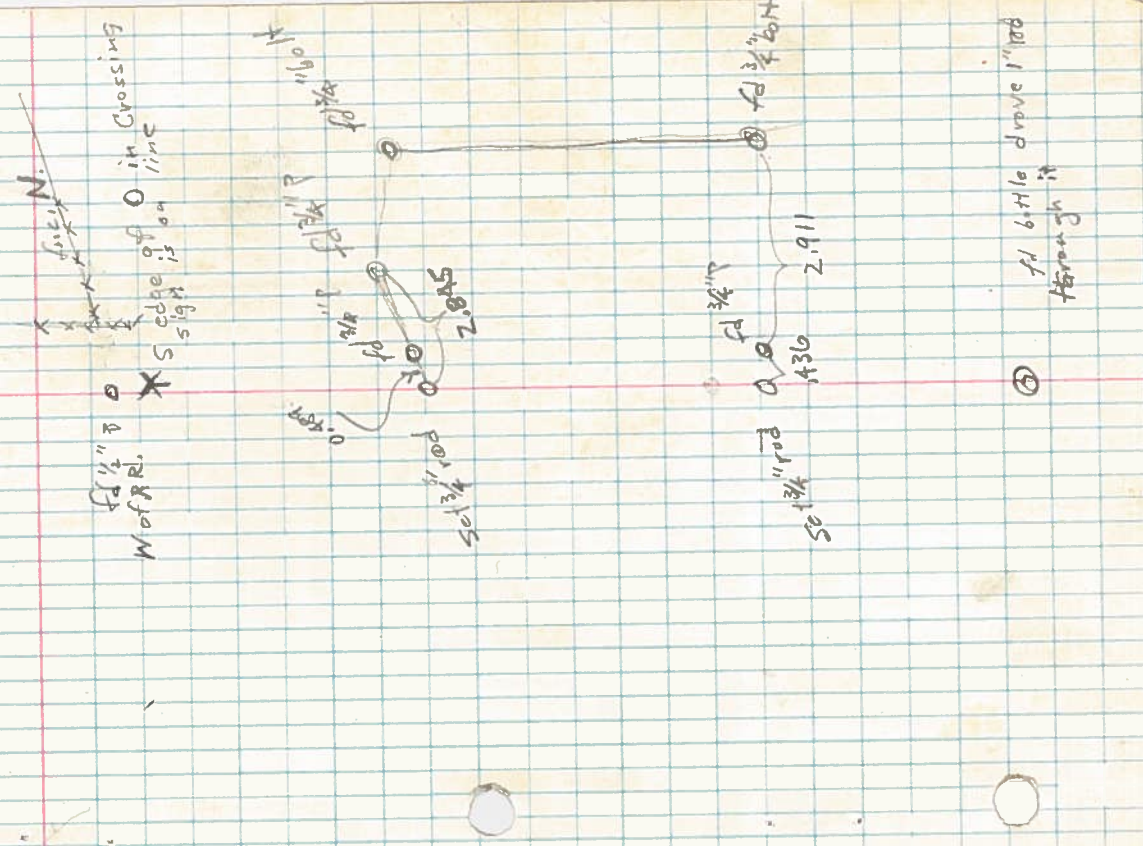 N.
fnc.
fd ½" P
W of RR.
S edge of O in Crossing
sign is on line
fd ¾" bolt
fd ¾" P
fd ¾" P
2.845
Set ¾" rod
fd ¾" bolt
fd ¾" P
2.911
.436
Set ¾" rod
fd bottle drove 1" rod
through it